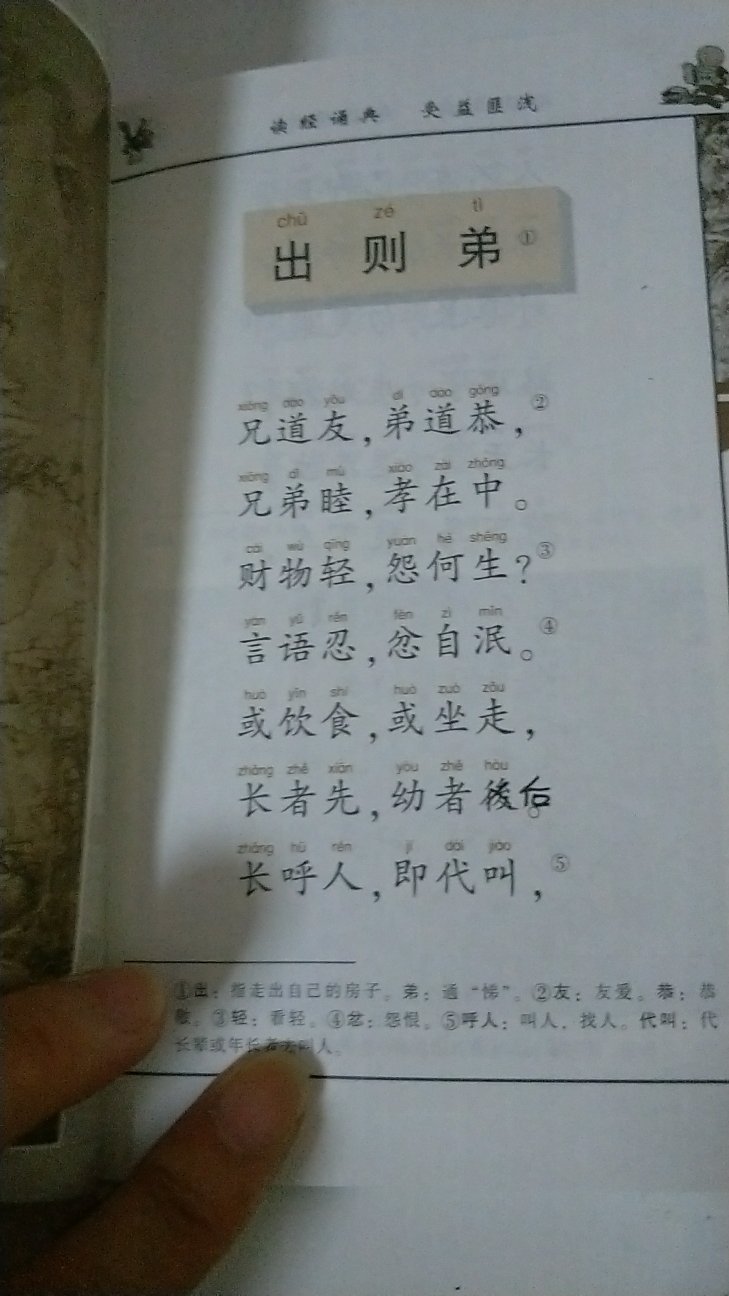 读经诵典 受益匪浅
chū zé tì
出则弟①
xiōng dào yǒu dì dào gōng
兄道友,弟道恭,②
xiōng dì mù xiào zài zhōng
兄弟睦,孝在中。
cái wù qīng yuàn hé shēng
财物轻,怨何生?③
yán yǔ rěn fèn zì mǐn
言语忍,忿自泯。④
huò yǐn shí huò zuò zǒu
或饮食,或坐走,
zhǎng zhě xiān yòu zhě hòu
长者先,幼者後后。
zhǎng hū rén jí dài jiào
长呼人,即代叫,⑤
①出:指走出自己的房子。弟:通“悌”。②友:友爱。恭:恭
敬。③轻:看轻。④忿:怨恨。⑤呼人:叫人,找人。代叫:代
长辈或年长者去叫人。